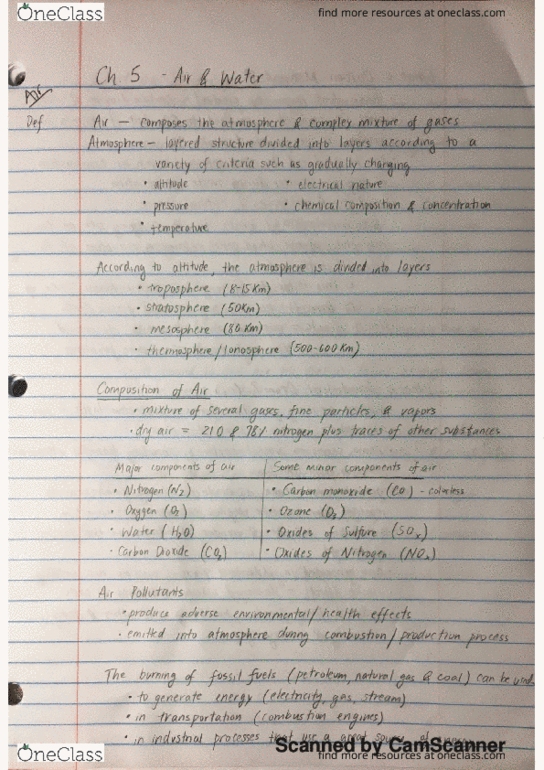 OneClass
find more resources at oneclass.com
Ch 5 - Air & Water
Air
Def
Air — composes the atmosphere & complex mixture of gases
Atmosphere - layered structure divided into layers according to a
variety of criteria such as gradually changing
• altitude • electrical nature
• pressure • chemical composition & concentration
• temperature
According to altitude, the atmosphere is divided into layers
• troposphere (8-15 Km)
• stratosphere (50Km)
• mesosphere (80 Km)
• thermosphere/Ionosphere (500-600 Km)
Composition of Air
• mixture of several gases, fine particles, & vapors
• dry air = 210 & 78% nitrogen plus traces of other substances
Major components of air Some minor components of air
• Nitrogen (N₂) • Carbon monoxide (CO) - colorless
• Oxygen (O₂) • Ozone (O₃)
• Water (H₂O) • Oxides of Sulfure (SOₓ)
• Carbon Dioxide (CO₂) • Oxides of Nitrogen (NOₓ)
Air Pollutants
• produce adverse environmental/health effects
• emitted into atmosphere during combustion/production process
The burning of fossil fuels (petroleum, natural gas & coal) can be used
• to generate energy (electricity, gas, stream)
• in transportation (combustion engines)
• in industrial processes that use a great source of
Scanned by CamScanner
OneClass
find more resources at oneclass.com